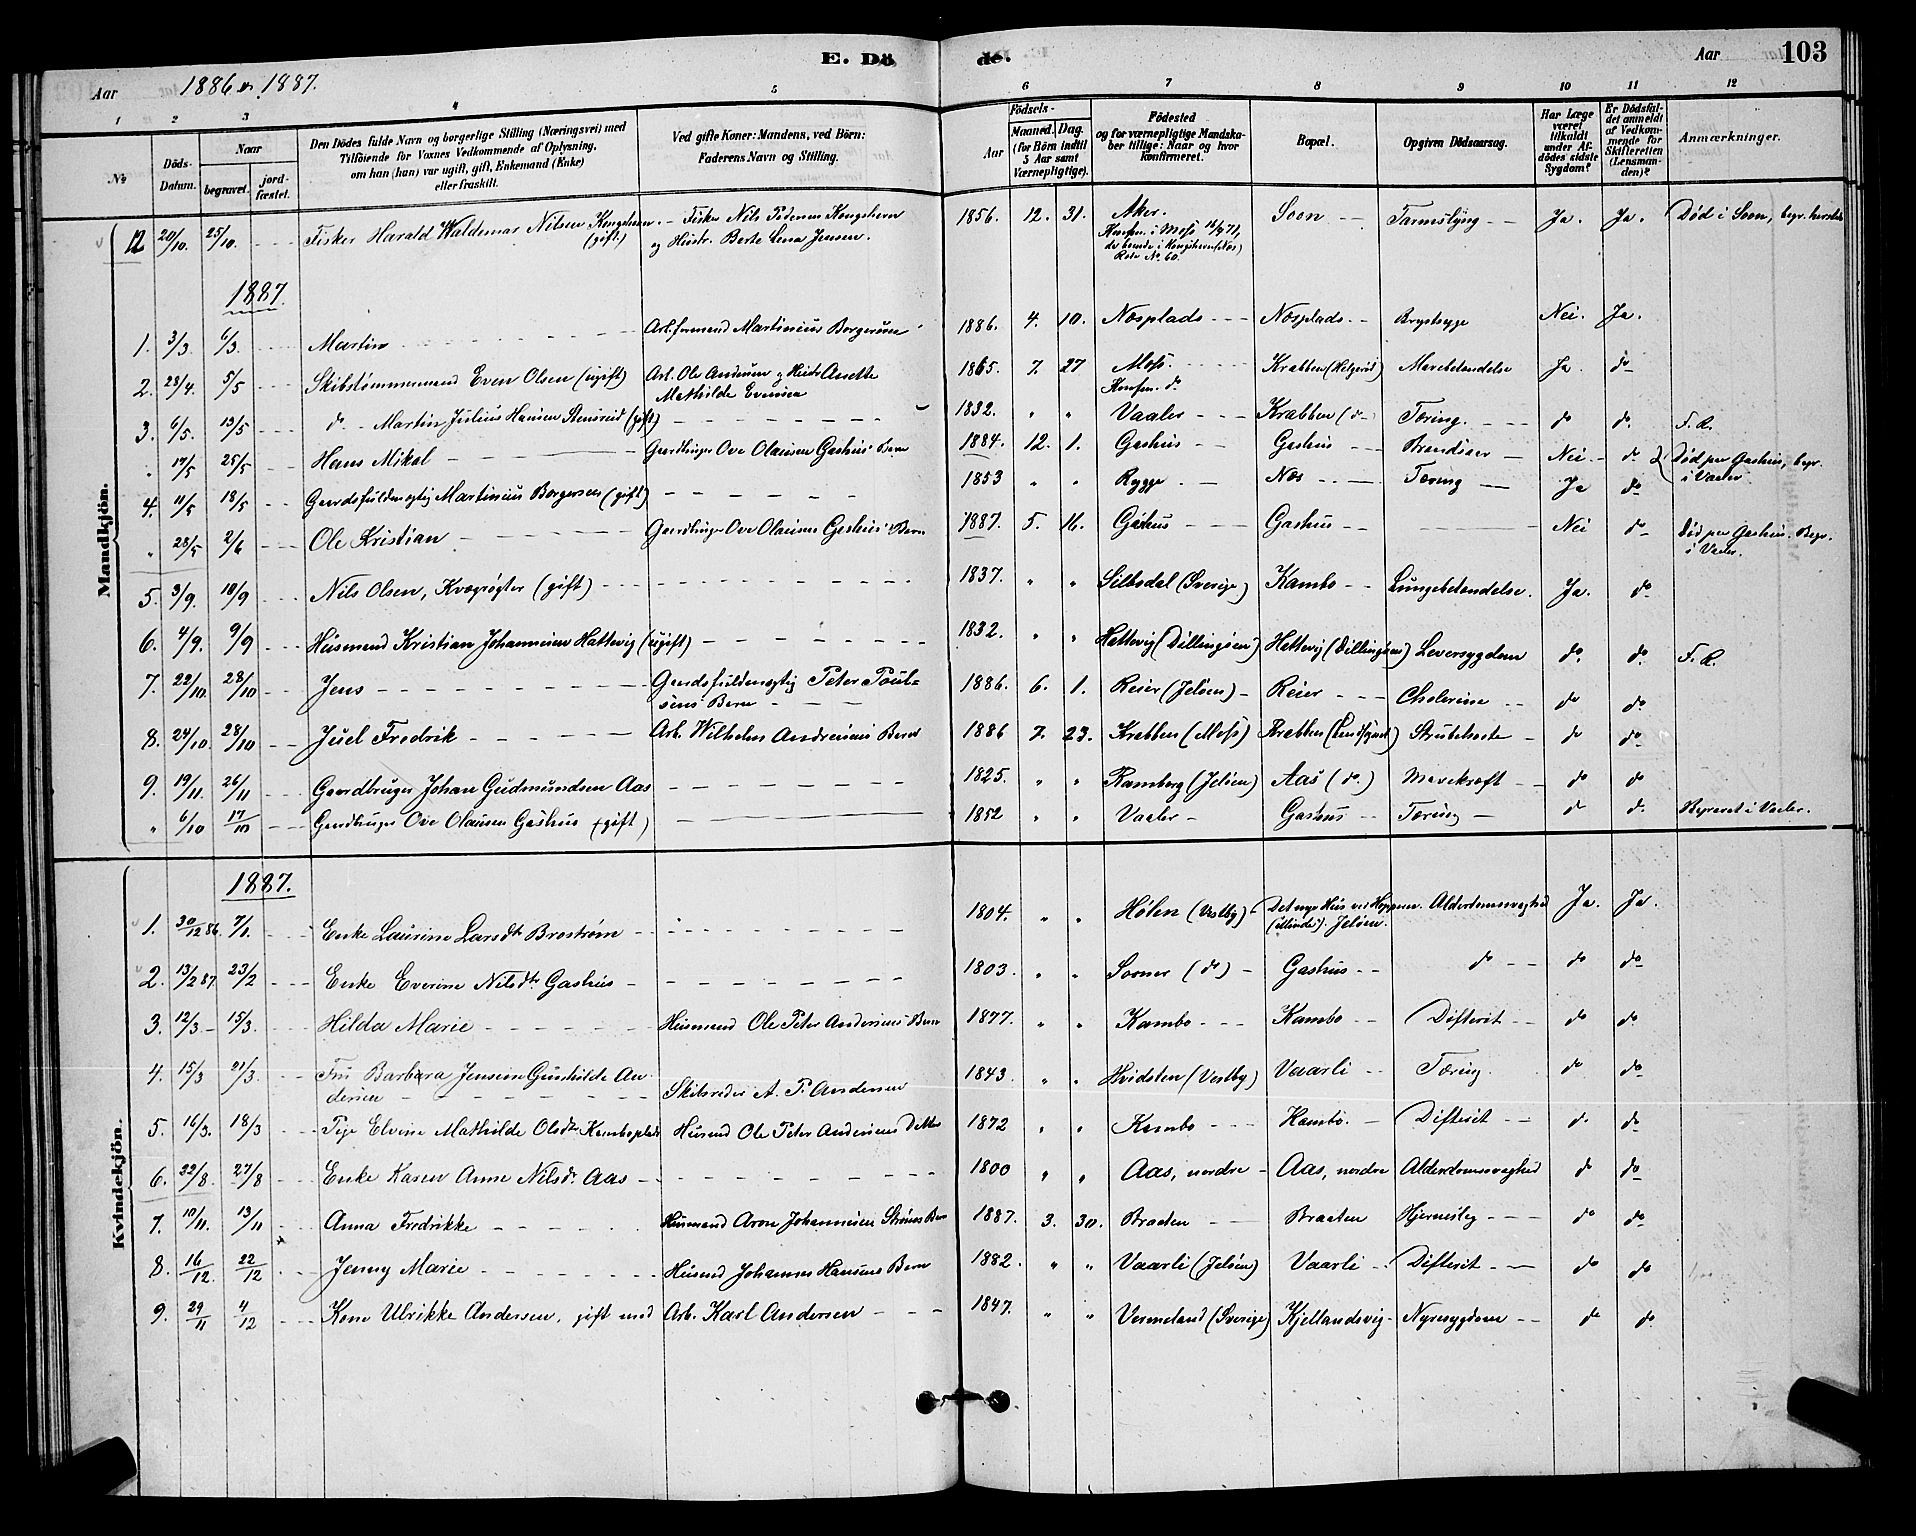 E. Döde.
Aar 1886 og 1887.
Aar 103
1 2 3 4 5 6 7 8 9 10 11 12
No Döds-Datum. Naar begravet. jordfæstet. Den Dödes fulde Navn og borgerlige Stilling (Næringsvei) med Tilföiende for Voxnes Vedkommende af Oplysning, om han (hun) var ugift, gift, Enkemand (Enke) eller fraskilt. Ved gifte Koner: Mandens, ved Börn: Faderens Navn og Stilling. Födsels- Aar Maaned. Dag. (for Börn indtil 5 Aar samt Værnepligtige). Födested og for værnepligtige Mandskaber tillige: Naar og hvor konfirmeret. Bopæl. Opgiven Dödsaarsag. Har Læge været tilkaldt under Afdödes sidste Sygdom? Er Dödsfaldet anmeldt af Vedkommende for Skifteretten (Lensmanden)? Anmærkninger.
Mandkjön.
12 20/10. 25/10. Fisker Harald Waldemar Nilsen Kongshavn (gift) Fisker Nils Pedersen Kongshavn og Hustr. Berte Lena Jensen. 1856. 12. 31. Aker. Konfm. i Moss 71, Rolle No. 60. Soon Tarmslyng Ja. Ja. Död i Soon, begr.
1887.
1. 3/3 6/3. Martin Arb.formand Martinius Borgersen 1886. 4. 10. Næsplads Næsplads Brystsyge Nei. Ja.
2. 28/4. 5/5 Skibstömmermand Even Olsen (ugift) Arb. Ole Andersen og Hustr. Anette Mathilde Evensen 1865. 7. 27 Moss. Konfm. do Krabben (Helgerød) Mavebetændelse Ja. do
3. 6/5. 13/5 do Martin Julius Hansen Stensrud (gift) 1832. " " Vaaler Krabben (do) Tæring. do do. F. R.
" 17/5 25/5 Hans Mikal Gaardbruger Ove Olausen Gashus' Barn 1884. 12. 1. Gashus Gashus Nei do Död paa Gashus, begr. i Vaaler
4. 11/5 18/5 Gaardsfuldmægtig Martinius Borgersen (gift) 1853 " " Rygge Næs Tæring Ja do
" 28/5 2/6 Ole Kristian Gaardbruger Ove Olausens Gashus' Barn 1887. 5. 16. Gashus Gashus Nei do Död paa Gashus. Begr. i Vaaler.
5. 3/9. 10/9 Nils Olsen, Kvægrøgter (gift) 1837. " " Silbodal (Sverige) Kambo Lungebetændelse. Ja. do
6. 4/9. 9/9 Husmand Kristian Johannesen Hattevig (ugift) 1832. " " Hattevig (Dillingøen) Hattevig (Dillingøen) Leversygdom do. do. F. R.
7. 22/10. 28/10 Jens Gaardsfuldmægtig Peter Poulsens Barn 1886. 6. 1. Reier (Jeløen) Reier Cholerine do do.
8. 24/10. 28/10 Juel Fredrik Arb. Wilhelm Andreasens Barn 1886 7. 23. Krabben (Moss) Krabben Strubehoste do do
9. 19/11. 26/11 Gaardbruger Johan Gudmundsen Aas 1825. " " Ramberg (Jeløen) Aas (do.) Mavekræft do do
" 6/10 17/10 Gaardbruger Ove Olausen Gashus (gift) 1852 " " Vaaler Gashus Tæring do do. Begravet i Vaaler.
Kvindekjön.
1887.
1. 30/12 86. 7/1. Enke Laurine Larsdtr. Broström 1804. " " Hølen (Vestby) Det nye Hus ved Hoppern. Jeløen. Alderdomssvaghed Ja. Ja.
2. 13/2 87. 23/2 Enke Everine Nilsdtr. Gashus 1803. " " Soner (do) Gashus do do do
3. 12/3 15/3. Hilda Marie Husmand Ole Peter Andersens Barn 1877. " " Kambo Kambo Difterit do do.
4. 15/3 21/3. Fru Barbara Jensine Gunhilde Andersen Skibsreder A. P. Andersen 1843. " " Hvidsten (Vestby) Vaarli Tæring. do do
5. 16/3. 18/3 Pige Elvine Mathilde Olsdtr. Kamboplads Husmd Ole Peter Andersens Datter 1872 " " Kambo Kambo. Difterit do do
6. 22/8. 27/8 Enke Karen Anne Nilsdr. Aas 1800 " " Aas, nordre Aas, nordre Alderdomssvaghed do do
7. 10/11. 13/11 Anna Fredrikke Husmand Aron Johannesen Barn 1887. 3. 30. Braaten Braaten Hjerneslag do do
8. 16/12. 22/12 Jenny Marie Husmd Johannes Hansens Barn 1882. " " Vaarli (Jeløen) Vaarli Difterit do do
9. 29/11 4/12 Kone Ulrikke Andersen, gift med Arb. Karl Andersen 1847. " " Vermeland (Sverige) Kjellandsvig Nyresygdom do do